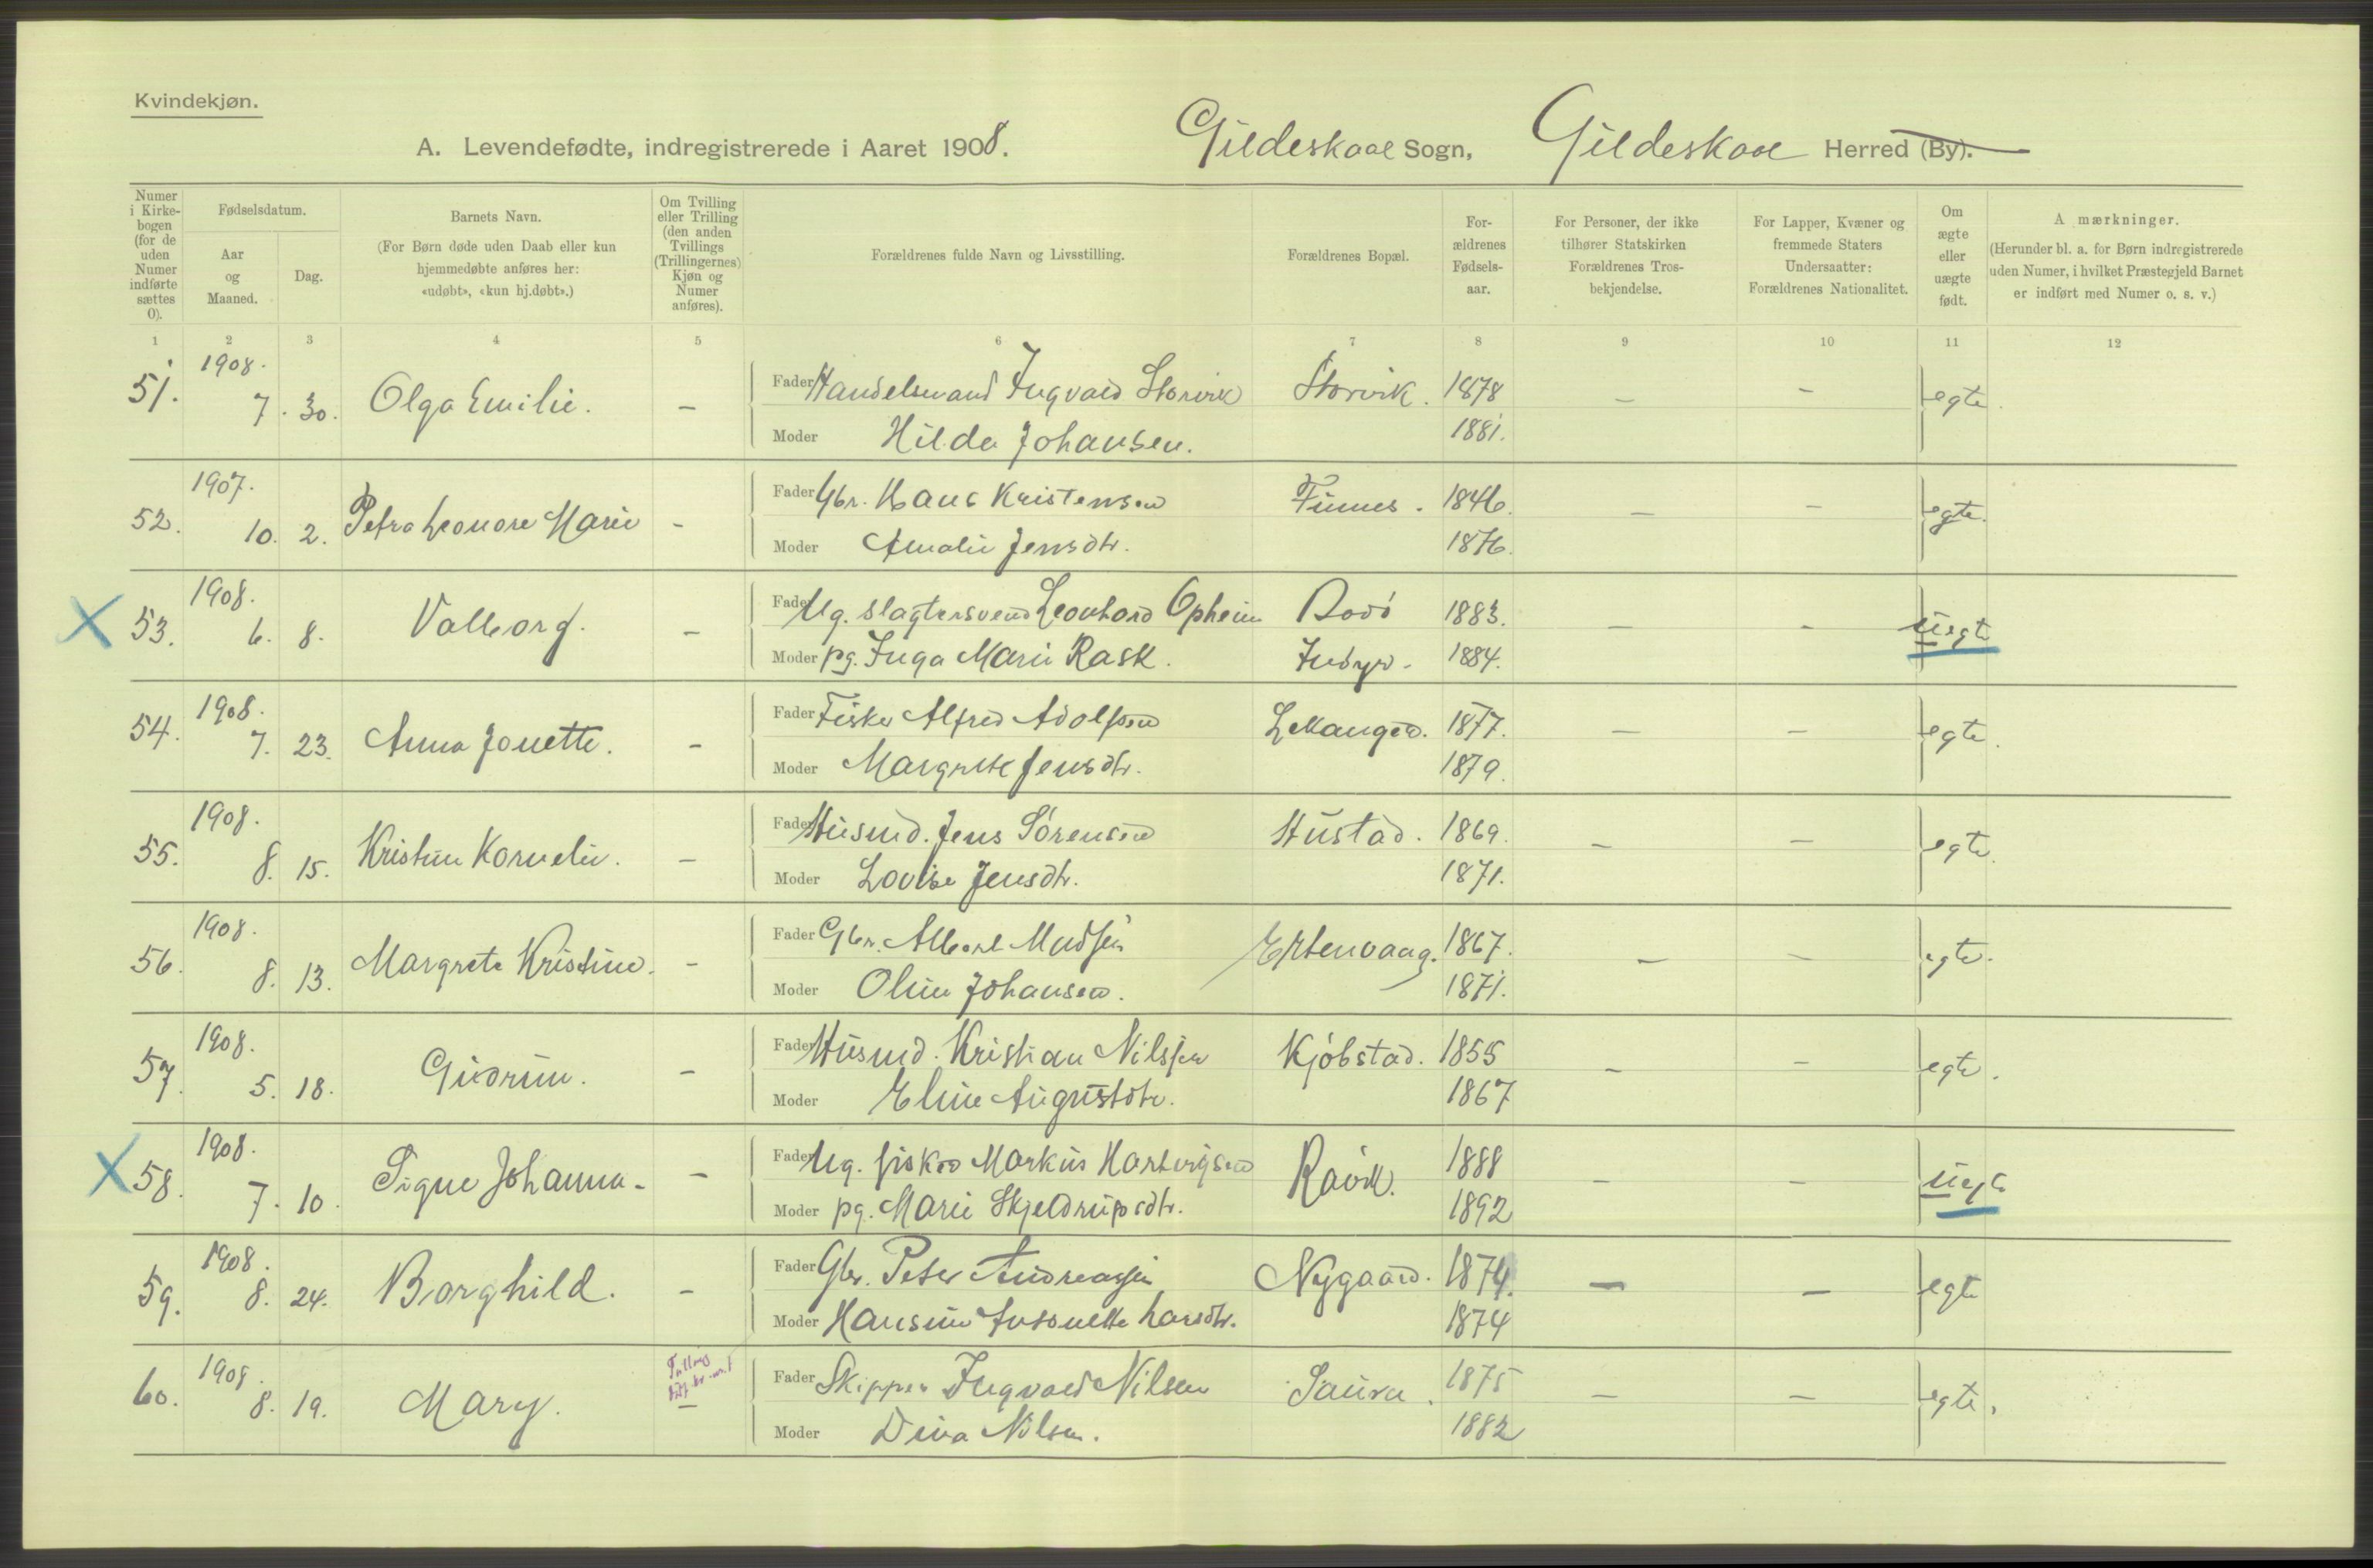 Kvindekjøn.
A. Levendefødte, indregistrerede i Aaret 1908. Gildeskaal Sogn, Gildeskaal Herred (By).
Numer i Kirke-bogen (for de uden Numer indførte sættes 0).
Fødselsdatum.
Aar og Maaned.
Dag.
Barnets Navn.
(For Børn døde uden Daab eller kun hjemmedøbte anføres her: «udøbt», «kun hj.døbt».)
Om Tvilling eller Trilling (den anden Tvillings (Trillingernes) Kjøn og Numer anføres).
Forældrenes fulde Navn og Livsstilling.
Forældrenes Bopæl.
For-ældrenes Fødsels-aar.
For Personer, der ikke tilhører Statskirken Forældrenes Tros-bekjendelse.
For Lapper, Kvæner og fremmede Staters Undersaatter: Forældrenes Nationalitet.
Om ægte eller uægte født.
A mærkninger.
(Herunder bl. a. for Børn indregistrerede uden Numer, i hvilket Præstegjeld Barnet er indført med Numer o. s. v.)
1 2 3 4 5 6 7 8 9 10 11 12
51. 1908. 7. 30. Olga Emilie. - Fader Handelsmand Ingvald Storvik Storvik. 1878 - - egte
Moder Hilda Johansen. 1881.
52. 1907. 10. 2. Petra Leonore Marie - Fader Gbr. Hans Kristensen Finnes. 1846. - - egte.
Moder Amalie Jensdtr. 1876.
X 53. 1908. 6. 8. Valborg. - Fader Ug. slagtersvend Leonhard Opheim Bodö 1883. - - uegte
Moder pg. Inga Marie Rask. Indyr. 1884.
54. 1908. 7. 23. Anna Jonette. - Fader Fisker Alfred Adolfsen Lekanger. 1877. - - egte.
Moder Margrete Jensdtr. 1879.
55. 1908. 8. 15. Kristine Kornelie. - Fader Husmd. Jens Sörensen Hustad. 1869. - - egte.
Moder Lovise Jensdtr. 1871.
56. 1908. 8. 13. Margrete Kristine. - Fader Gbr. Albert Madsen Ertenvaag. 1867. - - egte.
Moder Oline Johansen. 1871.
57. 1908. 5. 18. Gudrun. - Fader Husmd. Kristian Nilssen Kjöbstad. 1855 - - egte.
Moder Eline Augustdtr. 1867
X 58. 1908. 7. 10. Signe Johanna. - Fader Ug. fisker Markus Hartvigsen Ravik. 1888 - - uegte
Moder pg. Marie Skjeldrupsdtr. 1892
59. 1908. 8. 24. Borghild. - Fader Gbr. Peter Andreassen Nygaard. 1874. - - egte
Moder Hansine Antonette Larsdtr. 1874
60. 1908. 8. 19. Mary. - Fader Skipper Ingvald Nilsen Saura. 1875 - - egte.
Moder Dina Nilsen. 1882